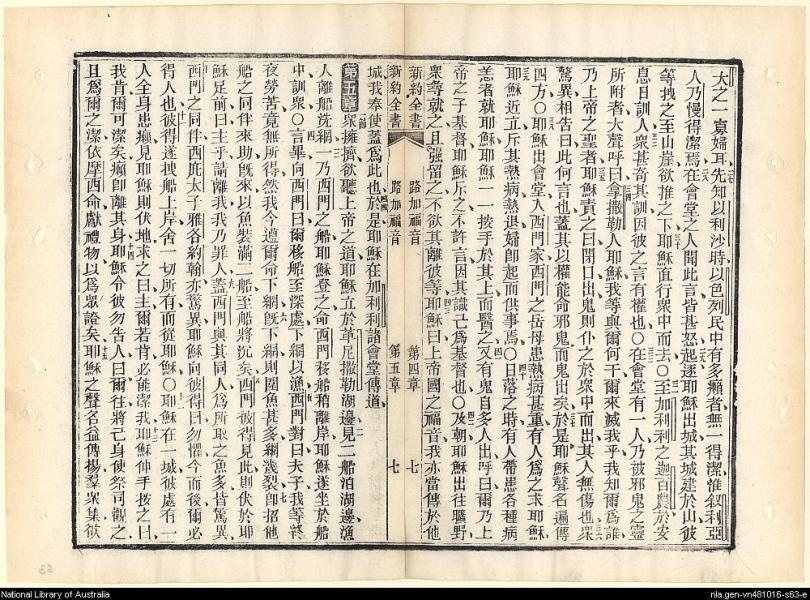 大之一寡婦耳先知以利沙時以色列民中有多癩者無一得潔惟敘利亞
人乃慢得潔焉在會堂之人聞此言皆甚怒起逐耶穌出城其城建於山彼
等拽之至山崖欲推之下耶穌直行衆中而去○至加利利之迦百農於安
息日訓人衆甚奇其訓因彼之言有權也○在會堂有一人乃被邪鬼之靈
所附者大聲呼曰拿撒勒人耶穌我等與爾何干爾來滅我乎我知爾爲誰
乃上帝之聖者耶穌責之曰閉口出鬼則仆之於衆中而出其人無傷也衆
驚異相告曰此何言也蓋其以權能命邪鬼而鬼出矣於是耶穌聲名遍傳
四方○耶穌出會堂入西門家西門之岳母患熱病甚重有人爲之求耶穌
耶穌近立斥其熱病熱退婦卽起而供事焉○日落之時有人帶患各種病
恙者就耶穌耶穌一一按手於其上而醫之又有鬼自多人出呼曰爾乃上
帝之子基督耶穌斥之不許言因其識己爲基督也○及朝耶穌出往曠野
衆尋就之且强留之不欲其離彼等耶穌曰上帝國之福音我亦當傳於他
新約全書 路加福音 第四章 七
新約全書 路加福音 第五章 七
城我奉使蓋爲此也於是耶穌在加利利諸會堂傳道
第五章衆擁擠欲聽上帝之道耶穌立於革尼撒勒湖邊見二船泊湖邊漁
人離船洗網一乃西門之船耶穌登之命西門移船稍離岸耶穌遂坐於船
中訓衆○言畢向西門曰爾移船至深處下網以漁西門對曰夫子我等終
夜勞苦竟無所得然我今遵爾命下網旣下網則圍魚甚多網幾裂卽招他
船之同伴來助旣來以魚裝滿二船至船將沉矣西門彼得見此則伏於耶
穌足前曰主乎請離我我乃罪人蓋西門與其同人爲所取之魚多皆驚異
西門之同伴西庇太子雅各約翰亦驚異耶穌向彼得曰勿懼今而後爾必
得人也彼得遂拽船上岸舍一切所有而從耶穌○耶穌在一城彼處有一
人全身患癩見耶穌則伏地求之曰主爾若肯必能潔我耶穌伸手按之曰
我肯爾可潔矣癩卽離其身耶穌令彼勿告人曰爾往將己身使祭司觀之
且爲爾之潔依摩西命獻禮物以爲衆證矣耶穌之聲名益傳楊羣衆集欲
63
National Library of Australia
nla.gen-vn481016-s63-e